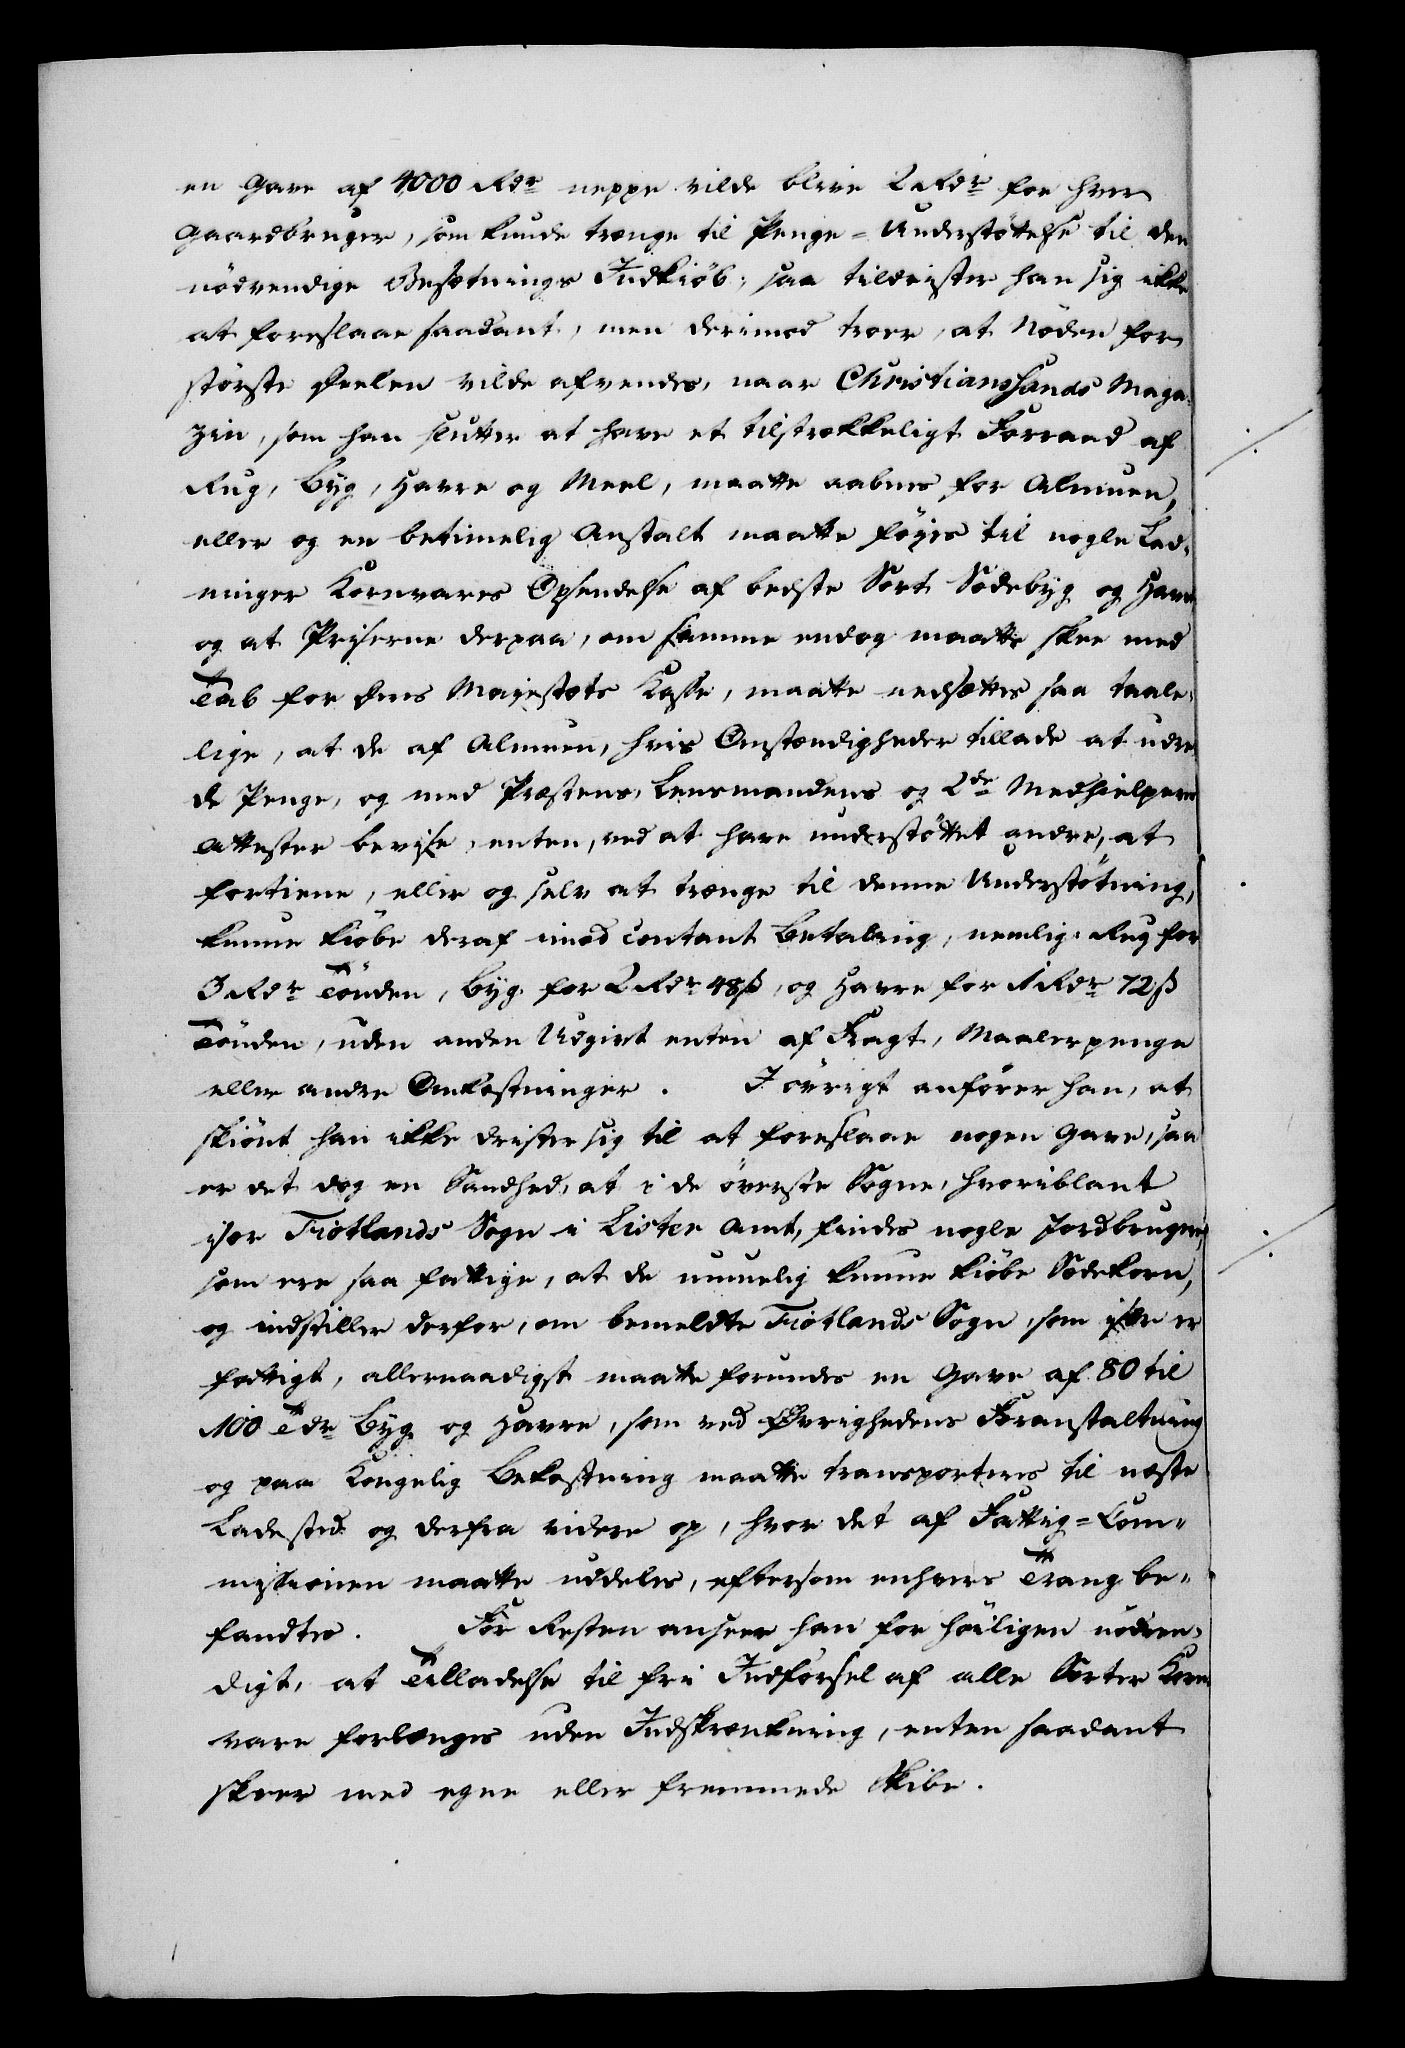 en Gave af 4000 Rdr neppe vilde blive 2 Rdr for hver
Gaardbruger, som kunde trænge til Penge-Understöttelse til den
nödvendige Besetnings Indkiöb; saa tildrister han sig ikke
at foreslaae saadant, men derimod troer, at Nöden for
störste Deelen vilde afvendes, naar Christianssands Maga-
zin, som han slutter at have et tilstrækkeligt Forraad af
Rug, Byg, Havre og Meel, maatte aabnes for Almuen,
eller og en betimelig Anstalt maatte föyes til nogle Lad-
ninger Kornvares Opsendelse af bedste Sort Södebyg og Havre
og at Priserne derpaa, om samme endog maatte skee med
Tab for Deres Majestæts Kasse, maatte nedsættes saa taale-
lige, at de af Almuen, hvis Omstændigheder tillade at udre-
de Penge, og med Præstens, Lensmandens og 2de Medhielperes
Attester bevise, enten, ved at have understöttet andre, at
fortiene, eller og selv at trænge til denne Understötning,
kunne kiöbe deraf imod contant Betaling, nemlig: Rug for
3 Rdr Tönden, Byg for 2 Rdr 48 ß, og Havre for 1 Rdr 72 ß
Tönden, uden anden Udgivt enten af Fragt, Maalerpenge
eller andre Omkostninger. I övrigt anförer han, at
skiönt han ikke drister sig til at foreslaae nogen Gave, saa
er det dog en Sandhed, at i de överste Sogne, hvoriblant
især Fiotlands Sogn i Lister Amt, findes nogle Jordbrugere,
som ere saa fattige, at de umuelig kunne kiöbe Södekorn,
og indstiller derfor, om bemeldte Fiotlands Sogn, som især er
fattigt, allernaadigst maatte forundes en Gave af 80 til
100 Tdr Byg og Havre, som ved Övrighedens Foranstaltning
og paa Kongelig Bekostning maatte transporteres til næste
Ladested og derfra videre op, hvor det af Fattig-Com-
missionen maatte uddeles, eftersom enhvers Trang be-
fandtes. For Resten anseer han for höiligen nödven-
digt, at Tilladelse til fri Indförsel af alle Sorter Korn
vare forlænges uden Indskrænkning, enten saadant
skeer med egne eller fremmede Skibe.